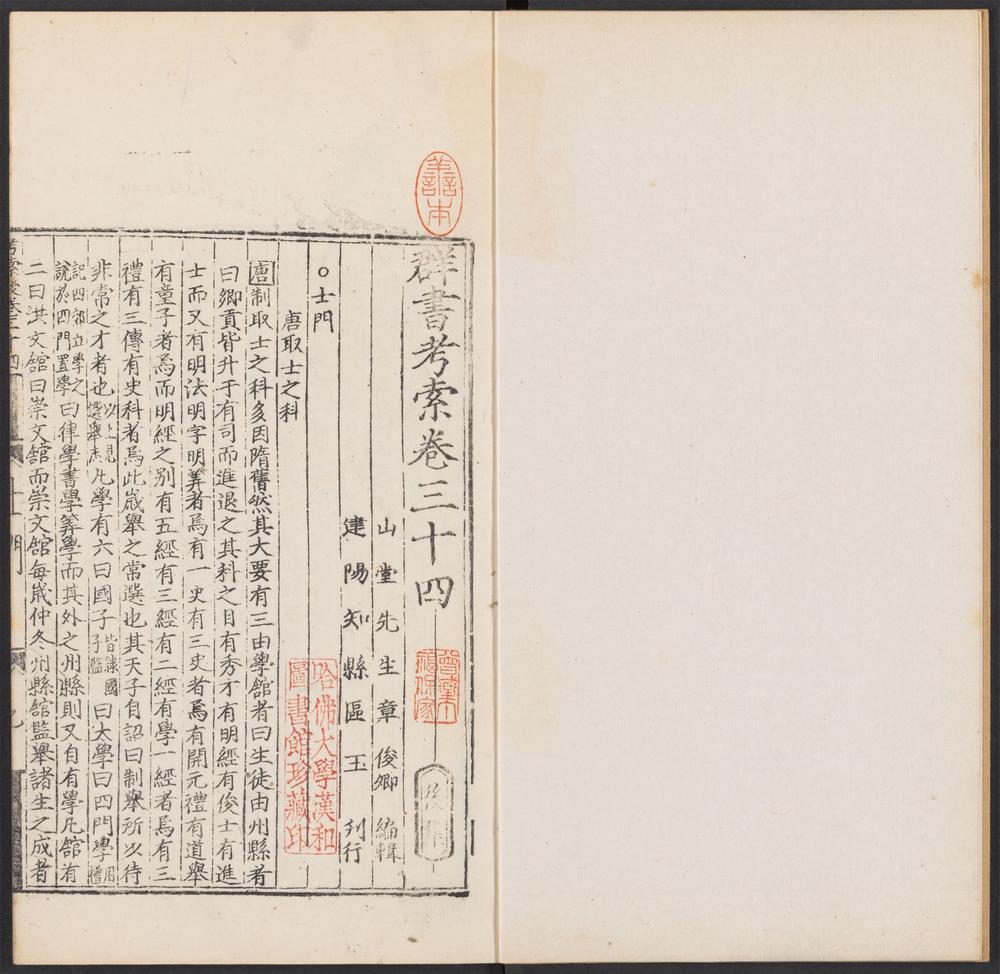 善本
群書考索卷三十四
後集
山堂先生章俊卿編輯
建陽知縣區玉刊行
哈佛大學漢和圖書館珍藏印
○士門
唐取士之科
唐制取士之科多因隋舊然其大要有三由學館者曰生徒由州縣者
曰鄉貢皆升于有司而進退之其科之目有秀才有明經有俊士有進
士而又有明法明字明筭者焉有一史有三史者焉有開元禮有道舉
有童子者焉而明經之别有五經有三經有二經有學一經者焉有三
禮有三傳有史科者焉此歲舉之常選也其天子自詔曰制舉所以待
非常之才者也以上見選舉志凡學有六曰國子皆隸國子監曰大學曰四門學禮
記四郊立學之說於四門置學曰律學書學筭學而其外之州縣則又自有學凡館有
二曰洪文館曰崇文館而崇文館每歲仲冬州縣館監舉諸生之成者
士門